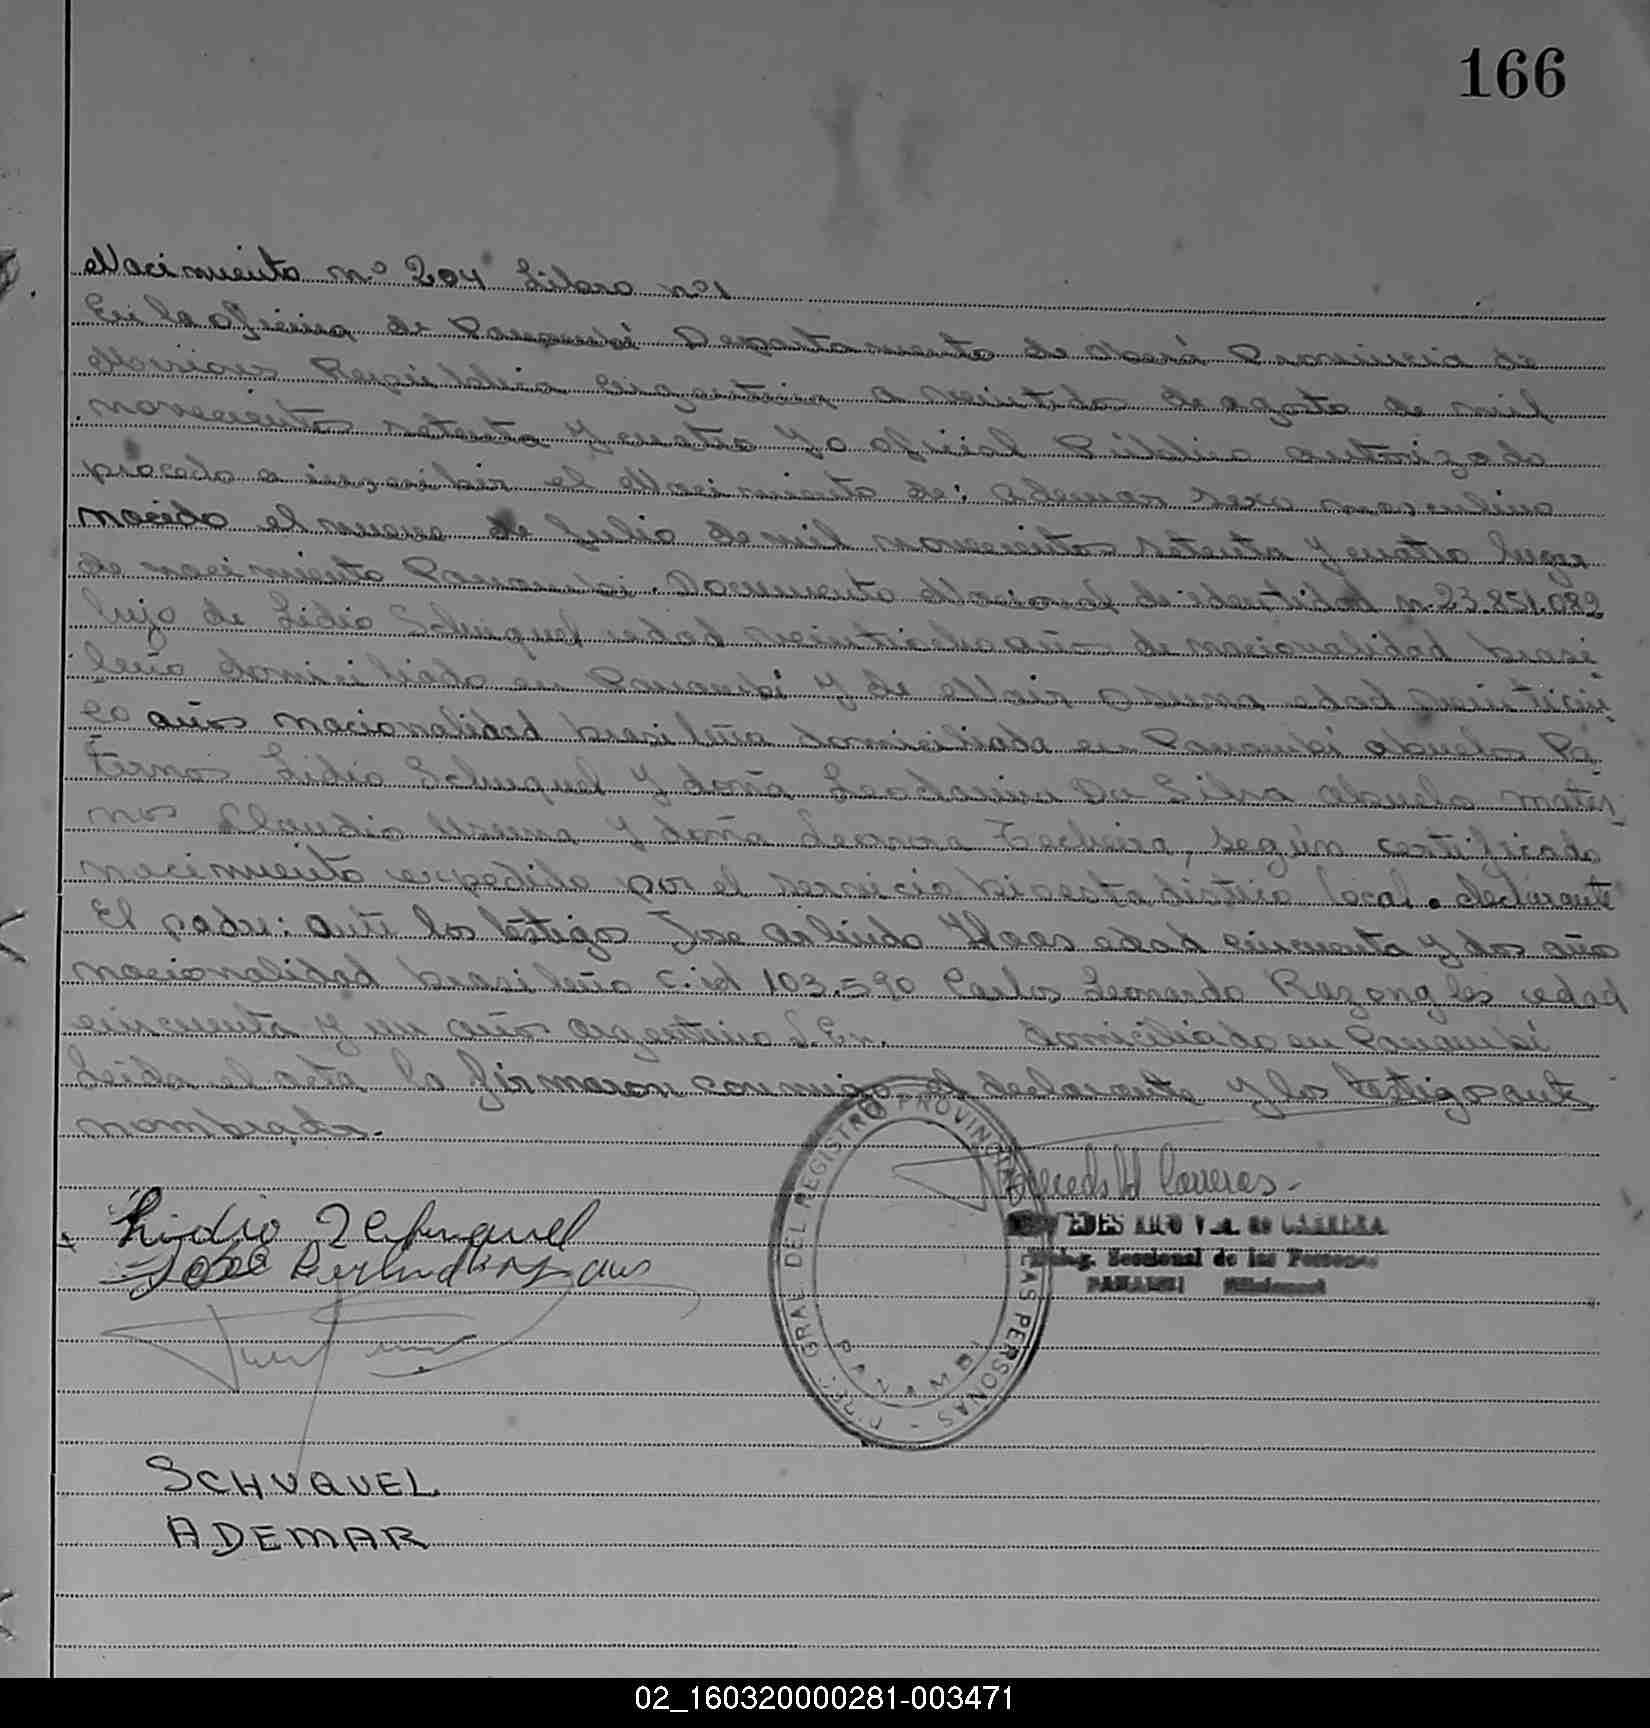 166
Nacimiento nº 204 Libro nº 1
En la oficina de Panambí Departamento de Oberá Provincia de
Misiones República Argentina a veintidos de agosto de mil
novecientos setenta y cuatro yo oficial Público autorizado
procedo a inscribir el Nacimiento de: Ademar sexo masculino
nacido el nueve de Julio de mil novecientos setenta y cuatro lugar
de nacimiento Panambí. Documento Nacional de identidad n. 23.851.082
hijo de Lidio Schuquel edad veintiocho años de nacionalidad brasi
leño domiciliado en Panambí y de edad veinticin
co años nacionalidad brasileña domiciliada en Panambí abuelos Pa
ternos Lidio Schuquel y doña Da Silva abuelo mater
nos Claudio y doña según certificado
nacimiento expedido por el servicio bioestadistico local. declarante
El padre: ante los testigos Jose Arlindo Haas edad cincuenta y dos años
nacionalidad brasileño C.id 103.590 Carlos Leonardo edad
cincuenta y un años argentino L.En. domiciliado en Panambí
Leida el acta la firmaron conmigo el declarante y los testigos ant
nombrados.
Lidio Schuquel
José
Carreras.
VDA. de CARRERA
Seccional de las Personas
PANAMBI Misiones
DIREC. GRAL. DEL REGISTRO PROVINCIAL DE LAS PERSONAS - PANAMBI
SCHUQUEL
ADEMAR
02_160320000281-003471